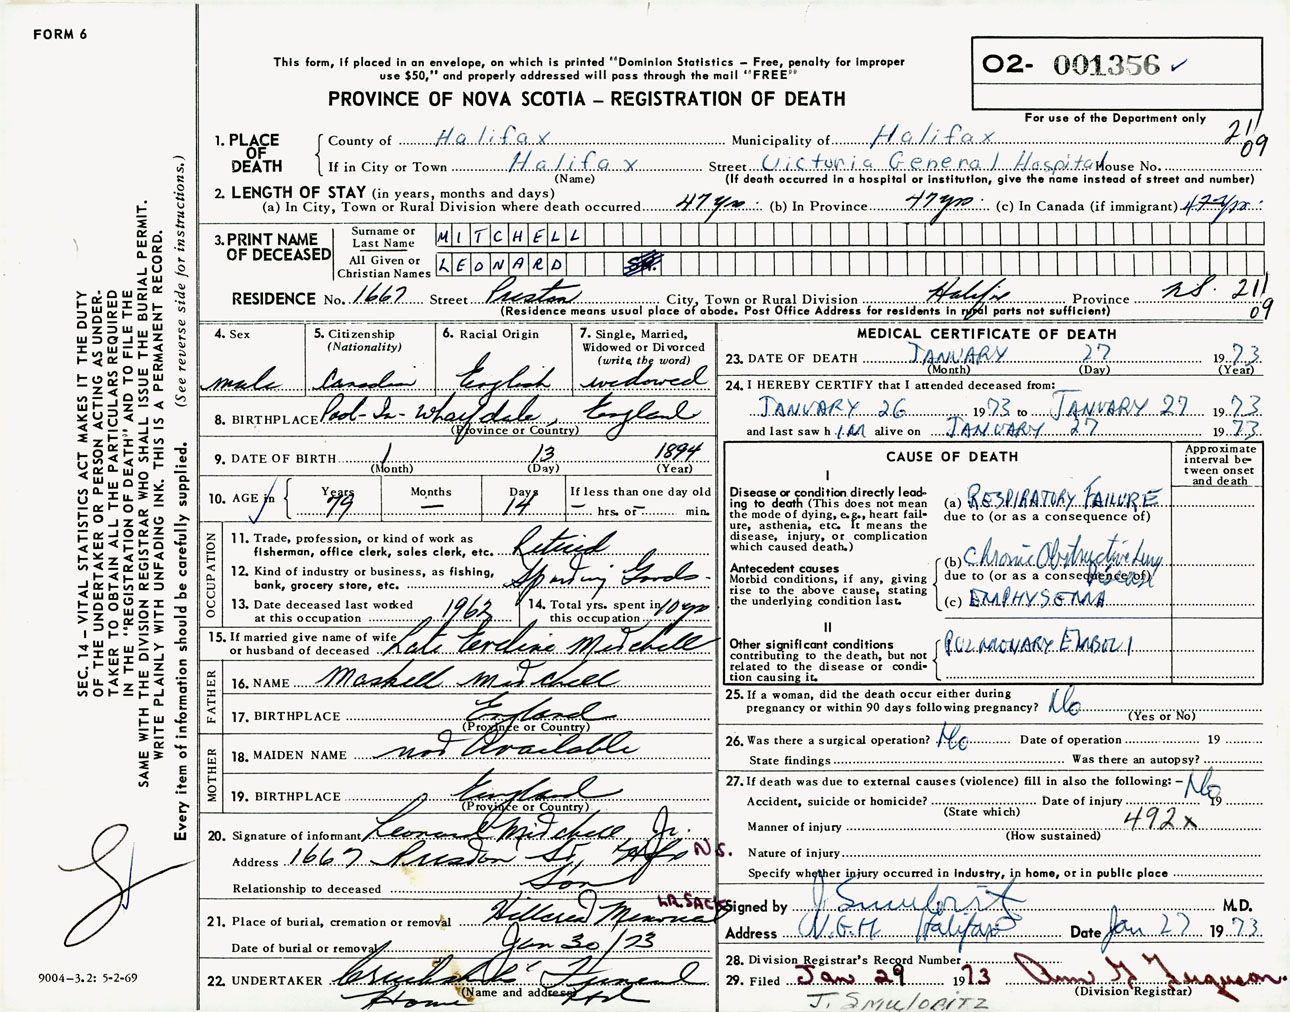 FORM 6
This form, if placed in an envelope, on which is printed "Dominion Statistics – Free, penalty for improper
use $50," and properly addressed will pass through the mail "FREE"
PROVINCE OF NOVA SCOTIA – REGISTRATION OF DEATH
02- 001356 ✓
For use of the Department only
211
09
1. PLACE OF DEATH
County of Halifax Municipality of Halifax
If in City or Town Halifax Street Victoria General Hospital House No.
(Name) (If death occurred in a hospital or institution, give the name instead of street and number)
2. LENGTH OF STAY (in years, months and days)
(a) In City, Town or Rural Division where death occurred 47 yrs. (b) In Province 47 yrs. (c) In Canada (if immigrant) 47 yrs.
3. PRINT NAME OF DECEASED
Surname or Last Name MITCHELL
All Given or Christian Names LEONARD
RESIDENCE No. 1667 Street Preston City, Town or Rural Division Halifax Province N.S. 211
09
(Residence means usual place of abode. Post Office Address for residents in rural parts not sufficient)
4. Sex male
5. Citizenship (Nationality) Canadian
6. Racial Origin English
7. Single, Married, Widowed or Divorced (write the word) widowed
8. BIRTHPLACE England
(Province or Country)
9. DATE OF BIRTH 1 13 1894
(Month) (Day) (Year)
10. AGE in Years 79 Months — Days 14 If less than one day old — hrs. or — min.
OCCUPATION
11. Trade, profession, or kind of work as fisherman, office clerk, sales clerk, etc. Retired
12. Kind of industry or business, as fishing, bank, grocery store, etc. Sporting Goods
13. Date deceased last worked at this occupation 1962
14. Total yrs. spent in this occupation 10 yrs
15. If married give name of wife or husband of deceased Late Mitchell
FATHER
16. NAME Maskell Mitchell
17. BIRTHPLACE England
(Province or Country)
MOTHER
18. MAIDEN NAME not Available
19. BIRTHPLACE England
(Province or Country)
20. Signature of informant Leonard Mitchell Jr.
Address 1667 Preston St, Hfx N.S.
Relationship to deceased Son
21. Place of burial, cremation or removal Hillcrest Memorial LR SACK
Date of burial or removal Jan 30/73
22. UNDERTAKER Cruikshanks' Funeral
Home Ltd
(Name and address)
MEDICAL CERTIFICATE OF DEATH
23. DATE OF DEATH JANUARY 27 1973
(Month) (Day) (Year)
24. I HEREBY CERTIFY that I attended deceased from:
JANUARY 26 1973 to JANUARY 27 1973
and last saw h im alive on JANUARY 27 1973
CAUSE OF DEATH
Approximate interval between onset and death
I
Disease or condition directly leading to death (This does not mean the mode of dying, e.g., heart failure, asthenia, etc. It means the disease, injury, or complication which caused death.)
(a) RESPIRATORY FAILURE
due to (or as a consequence of)
Antecedent causes
Morbid conditions, if any, giving rise to the above cause, stating the underlying condition last.
(b) Chronic Obstructive Lung Disease
due to (or as a consequence of)
(c) EMPHYSEMA
II
Other significant conditions contributing to the death, but not related to the disease or condition causing it.
PULMONARY EMBOLI
25. If a woman, did the death occur either during
pregnancy or within 90 days following pregnancy? No
(Yes or No)
26. Was there a surgical operation? No Date of operation 19
State findings Was there an autopsy?
27. If death was due to external causes (violence) fill in also the following: – No
Accident, suicide or homicide? Date of injury 19
(State which)
Manner of injury 492x
(How sustained)
Nature of injury
Specify whether injury occurred in industry, in home, or in public place
Signed by J Smulovitz M.D.
Address V.G.H. Halifax Date Jan 27 1973
28. Division Registrar's Record Number
29. Filed Jan 29 1973 Ann G Ferguson
(Division Registrar)
J. SMULOVITZ
SEC. 14 – VITAL STATISTICS ACT MAKES IT THE DUTY
OF THE UNDERTAKER OR PERSON ACTING AS UNDER-
TAKER TO OBTAIN ALL THE PARTICULARS REQUIRED
IN THE "REGISTRATION OF DEATH" AND TO FILE THE
SAME WITH THE DIVISION REGISTRAR WHO SHALL ISSUE THE BURIAL PERMIT.
WRITE PLAINLY WITH UNFADING INK. THIS IS A PERMANENT RECORD.
Every item of information should be carefully supplied. (See reverse side for instructions.)
9004–3.2: 5-2-69